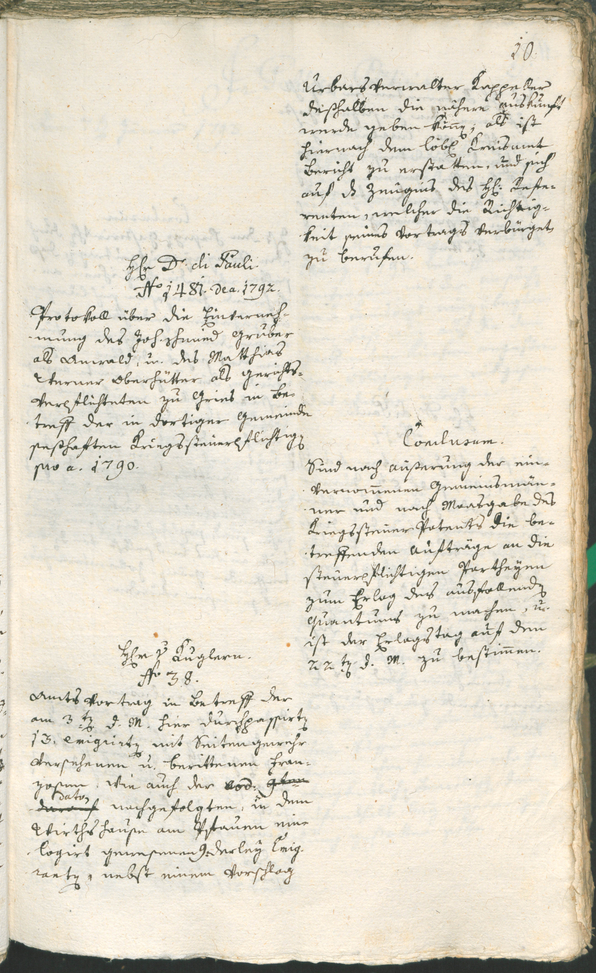 10.
Urbarsverwalter Kappeller
deßhalben die nähere Auskunft
werde geben können, als ist
hiernach dem löbl. Kreisamt
Bericht zu erstatten, und sich
auf das Zeugnis des H. Refe-
renten, welcher die Richtig-
keit seines Vortrags verbürget
zu berufen.
Hr. Dr. di Pauli
No 1481. de a. 1792.
Protokoll über die Einverneh-
mung des Joh. Schmied Gruber
als Anwald, u. des Matthias
Werner Oberhütter als Gerichts-
verpflichteten zu Gries in Be-
treff der in dortiger Gemeinde
seßhaften Kriegssteuerpflichtigen
pro a. 1790.
Conclusum.
Sind nach äußerung der ein-
vernommenen Gemeinsmän-
ner und nach Maasgabe des
Kriegssteuer Patents die be-
treffenden Aufträge an die
steuerpflichtigen Partheyen
zum Erlag des ausfallenden
Quantums zu machen, u.
ist der Erlagstag auf den
22ten d. M. zu bestimmen.
Hr. v. Kuglern.
No 38.
Amts Vortrag in Betreff der
am 3ten d. M. hier durchpassirten
13. Emigirten mit Seitengewehr
versehenen u. berittenen Fran-
zosen, wie auch der
dato nachgefolgten, in dem
Wirthshause am Pfauen ein-
logirt gewesenen derley Emig-
ranten, nebst einem Vorschlag